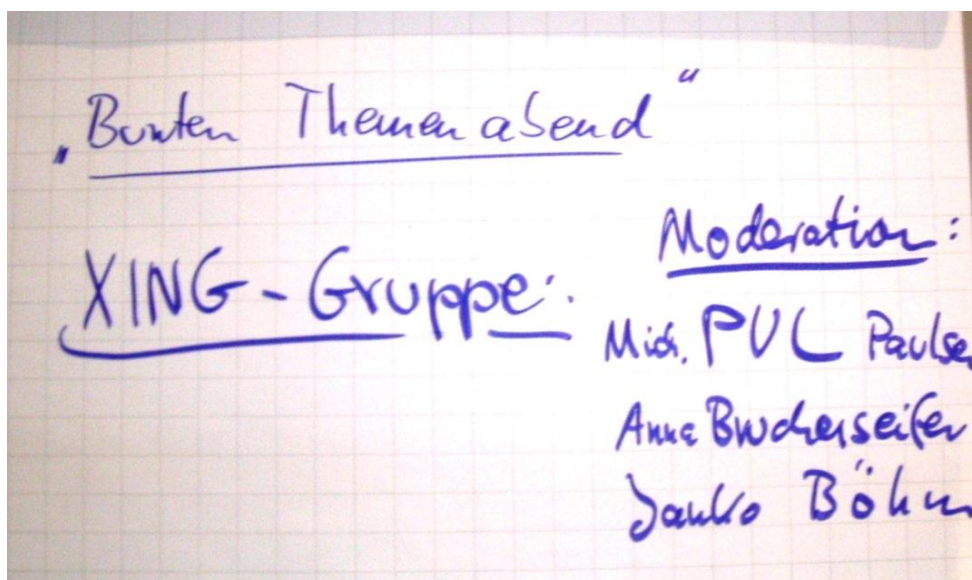 „Bunten Themenabend"
XING-Gruppe:
Moderation:
Mich. PVL Paulse
Anne Brucherseifer
Janko Böhm